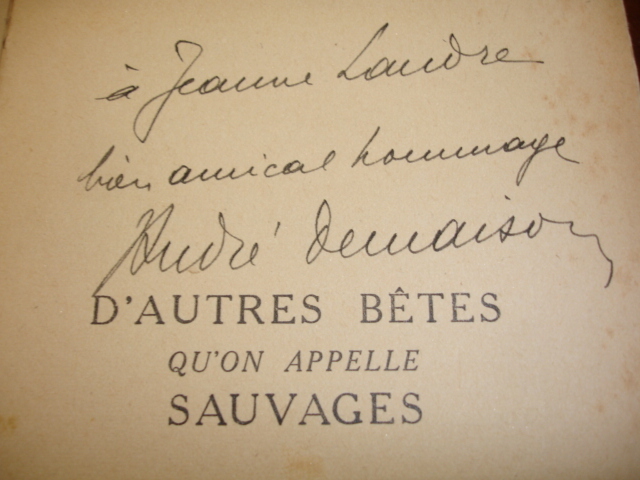 à Jeanne Landre
bien amical hommage
André Demaison
D'AUTRES BÊTES
QU'ON APPELLE
SAUVAGES